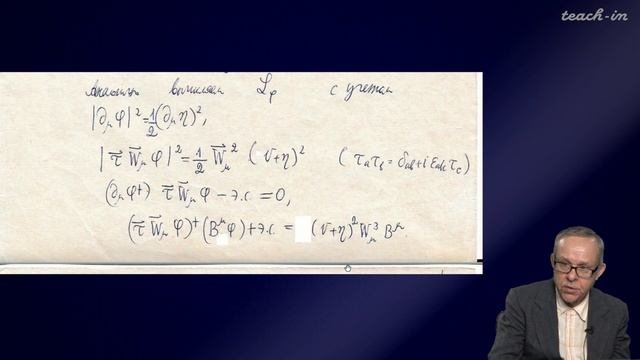 teach-in
вычисляем L_φ с учетом
|∂_μ φ|² = 1/2 (∂_μ η)²,
|τ⃗ W⃗_μ φ|² = 1/2 W⃗_μ² (v+η)² (τ_a τ_b = δ_ab + i ε_abc τ_c)
(∂_μ φ⁺) τ⃗ W⃗_μ φ – э.с. = 0,
(τ⃗ W⃗_μ φ)⁺ (B^μ φ) + э.с. = (v+η)² W_μ³ B^μ.